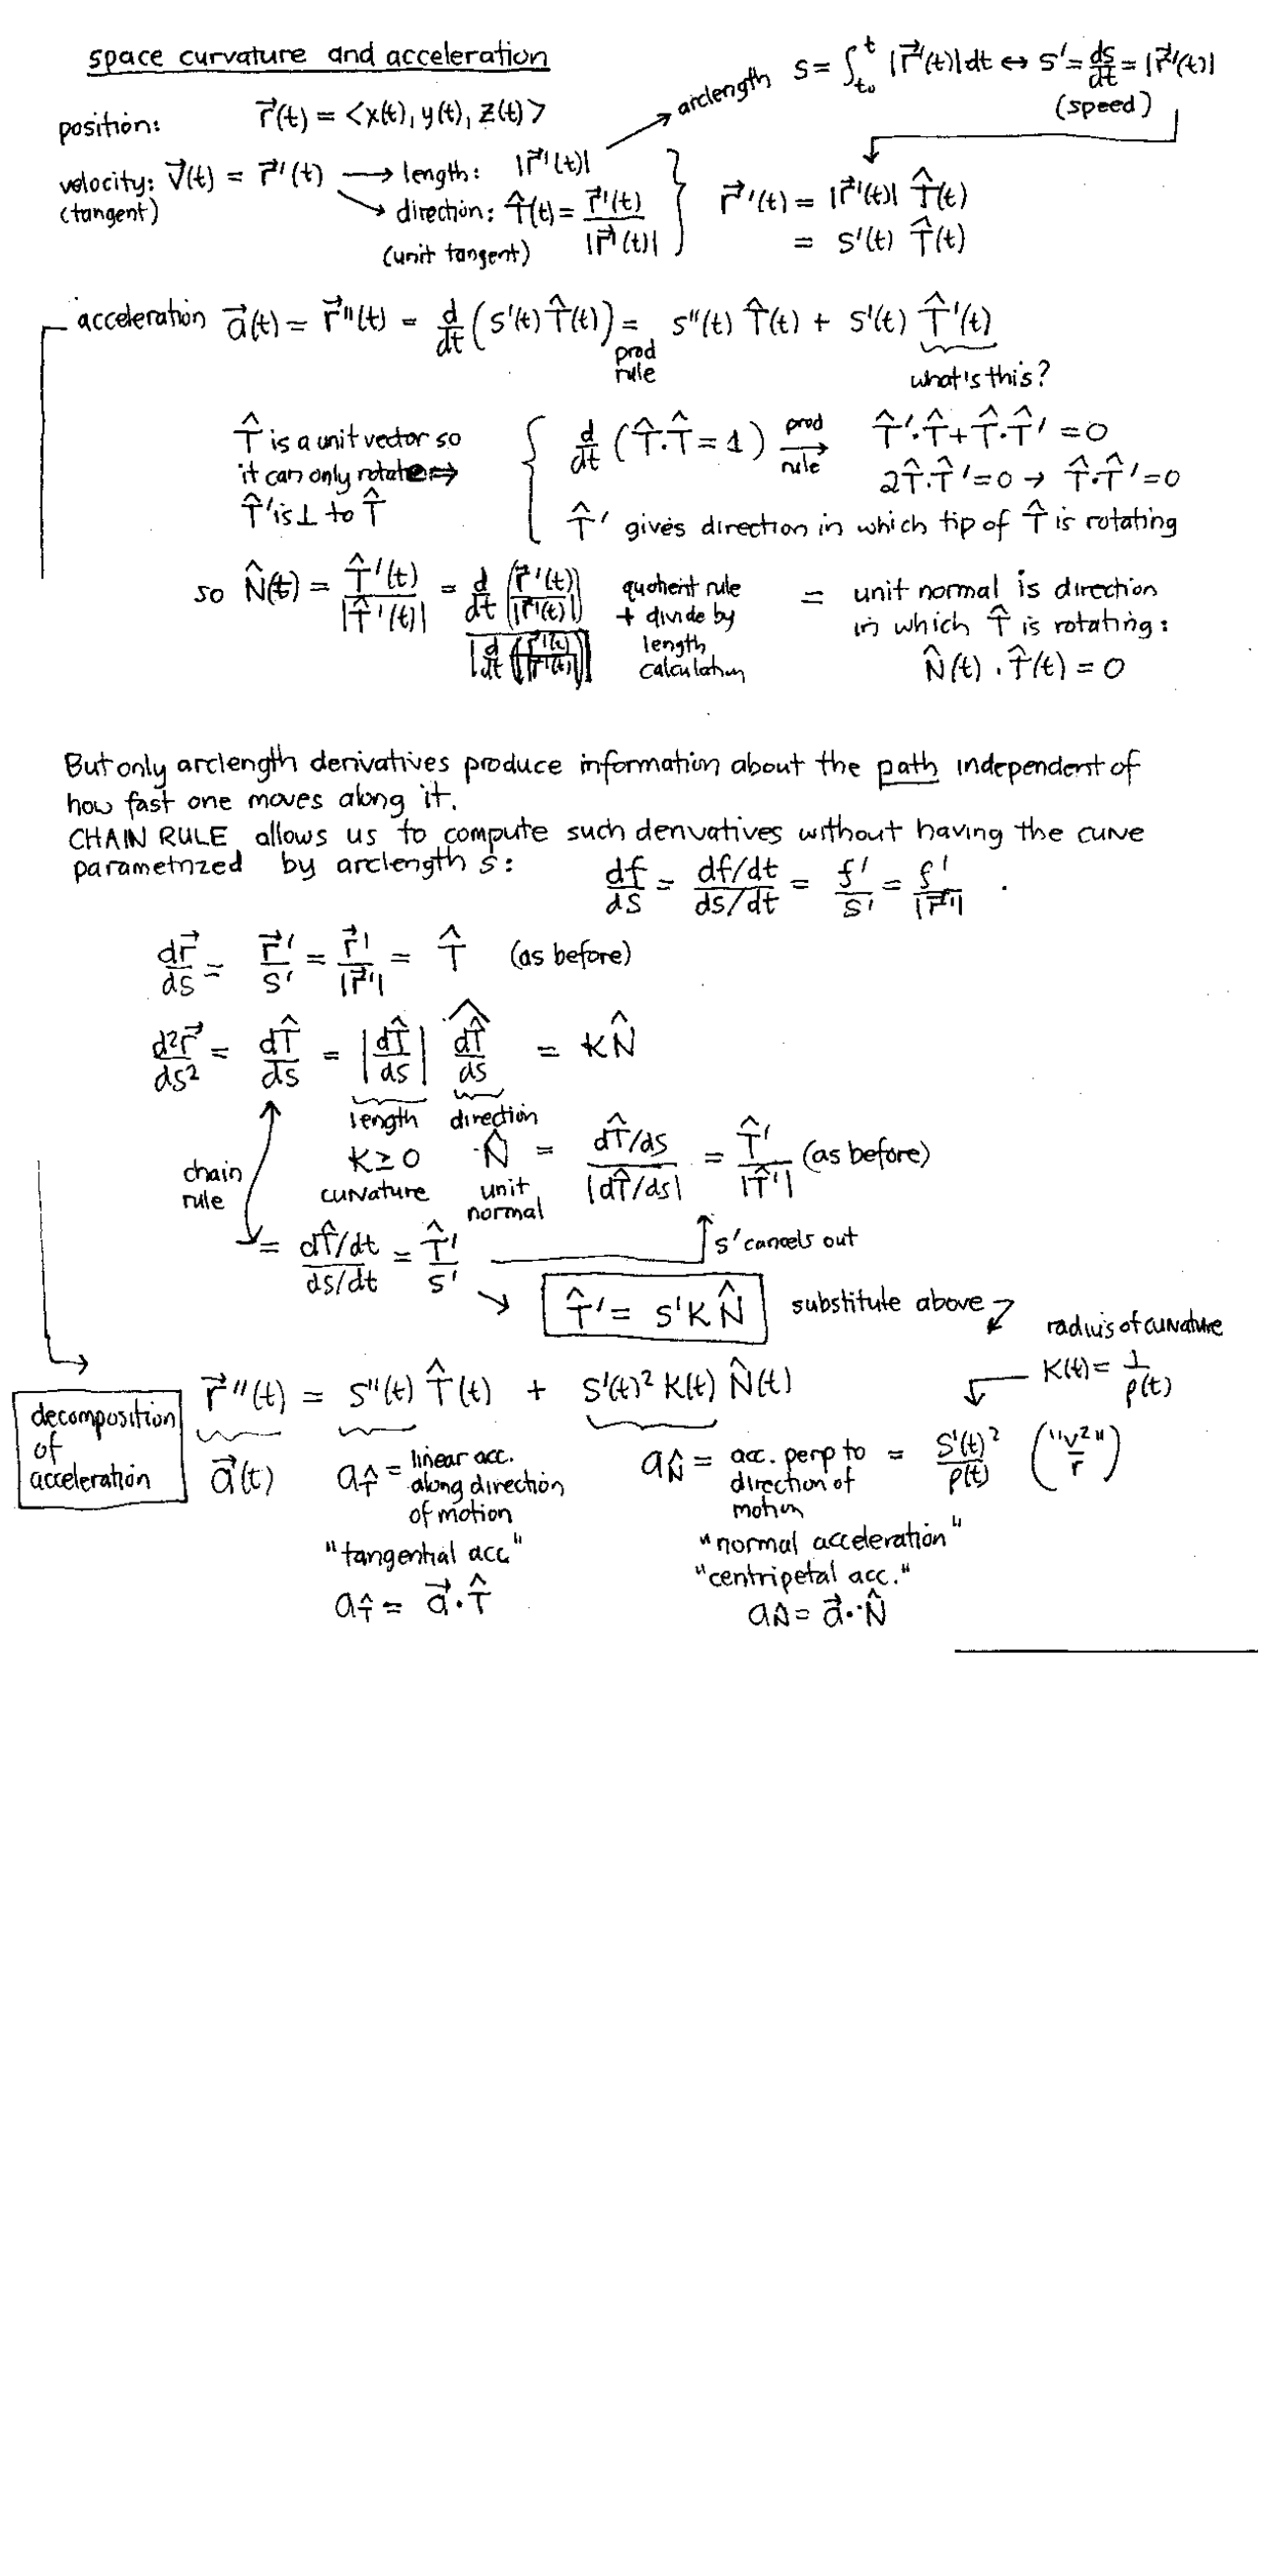 space curvature and acceleration
arclength s = ∫_{t₀}^{t} |r⃗'(t)| dt ↔ s' = ds/dt = |r⃗'(t)|
(speed)
position: r⃗(t) = <x(t), y(t), z(t)>
velocity: v⃗(t) = r⃗'(t) → length: |r⃗'(t)|
(tangent) → direction: T̂(t) = r⃗'(t)/|r⃗'(t)|
(unit tangent)
r⃗'(t) = |r⃗'(t)| T̂(t)
= s'(t) T̂(t)
acceleration a⃗(t) = r⃗''(t) = d/dt (s'(t) T̂(t)) = s''(t) T̂(t) + s'(t) T̂'(t)
prod rule
what's this?
T̂ is a unit vector so
it can only rotate ⇒
T̂' is ⊥ to T̂
d/dt (T̂·T̂ = 1) prod rule → T̂'·T̂ + T̂·T̂' = 0
2T̂·T̂' = 0 → T̂·T̂' = 0
T̂' gives direction in which tip of T̂ is rotating
so N̂(t) = T̂'(t)/|T̂'(t)| = d/dt (r⃗'(t)/|r⃗'(t)|) / |d/dt (r⃗'(t)/|r⃗'(t)|)|
quotient rule
+ divide by
length
calculation
= unit normal is direction
in which T̂ is rotating:
N̂(t) · T̂(t) = 0
But only arclength derivatives produce information about the path independent of
how fast one moves along it.
CHAIN RULE allows us to compute such derivatives without having the curve
parametrized by arclength s: df/ds = (df/dt)/(ds/dt) = f'/s' = f'/|r⃗'| .
dr⃗/ds = r⃗'/s' = r⃗'/|r⃗'| = T̂ (as before)
d²r⃗/ds² = dT̂/ds = |dT̂/ds| dT̂/ds^ = κN̂
length direction
κ ≥ 0 N̂ = (dT̂/ds)/|dT̂/ds| = T̂'/|T̂'| (as before)
curvature unit normal
chain
rule
= (dT̂/dt)/(ds/dt) = T̂'/s'
s' cancels out
T̂' = s'κN̂ substitute above
radius of curvature
κ(t) = 1/ρ(t)
decomposition
of
acceleration
r⃗''(t) = s''(t) T̂(t) + s'(t)² κ(t) N̂(t)
a⃗(t)
a_T̂ = linear acc.
along direction
of motion
"tangential acc"
a_T̂ = a⃗·T̂
a_N̂ = acc. perp to = s'(t)²/ρ(t) ("v²/r")
direction of
motion
"normal acceleration"
"centripetal acc."
a_N̂ = a⃗·N̂